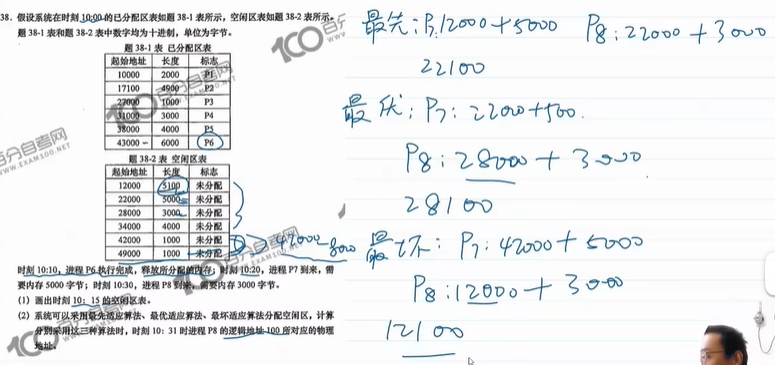 38. 假设系统在时刻 10:00 的已分配区表如题 38-1 表所示，空闲区表如题 38-2 表所示。
题 38-1 表和题 38-2 表中数字均为十进制，单位为字节。
题 38-1 表 已分配区表
起始地址 长度 标志
10000 2000 P1
17100 4900 P2
27000 1000 P3
31000 3000 P4
38000 4000 P5
43000 6000 P6
题 38-2 表 空闲区表
起始地址 长度 标志
12000 5100 未分配
22000 5000 未分配
28000 3000 未分配
34000 4000 未分配
42000 1000 未分配
49000 1000 未分配
时刻 10:10，进程 P6 执行完成，释放所分配的内存；时刻 10:20，进程 P7 到来，需
要内存 5000 字节；时刻 10:30，进程 P8 到来，需要内存 3000 字节。
(1) 画出时刻 10：15 的空闲区表。
(2) 系统可以采用最先适应算法、最优适应算法、最坏适应算法分配空闲区，计算
分别采用这三种算法时，时刻 10：31 时进程 P8 的逻辑地址 100 所对应的物理
地址。
42000-8000
最先: P7 12000+5000 P8: 22000+3000
22100
最优: P7: 22000+500.
P8: 28000+3000.
28100
最坏: P7: 42000+5000
P8: 12000+3000
12100
百分自考网
WWW.EXAM100.NET